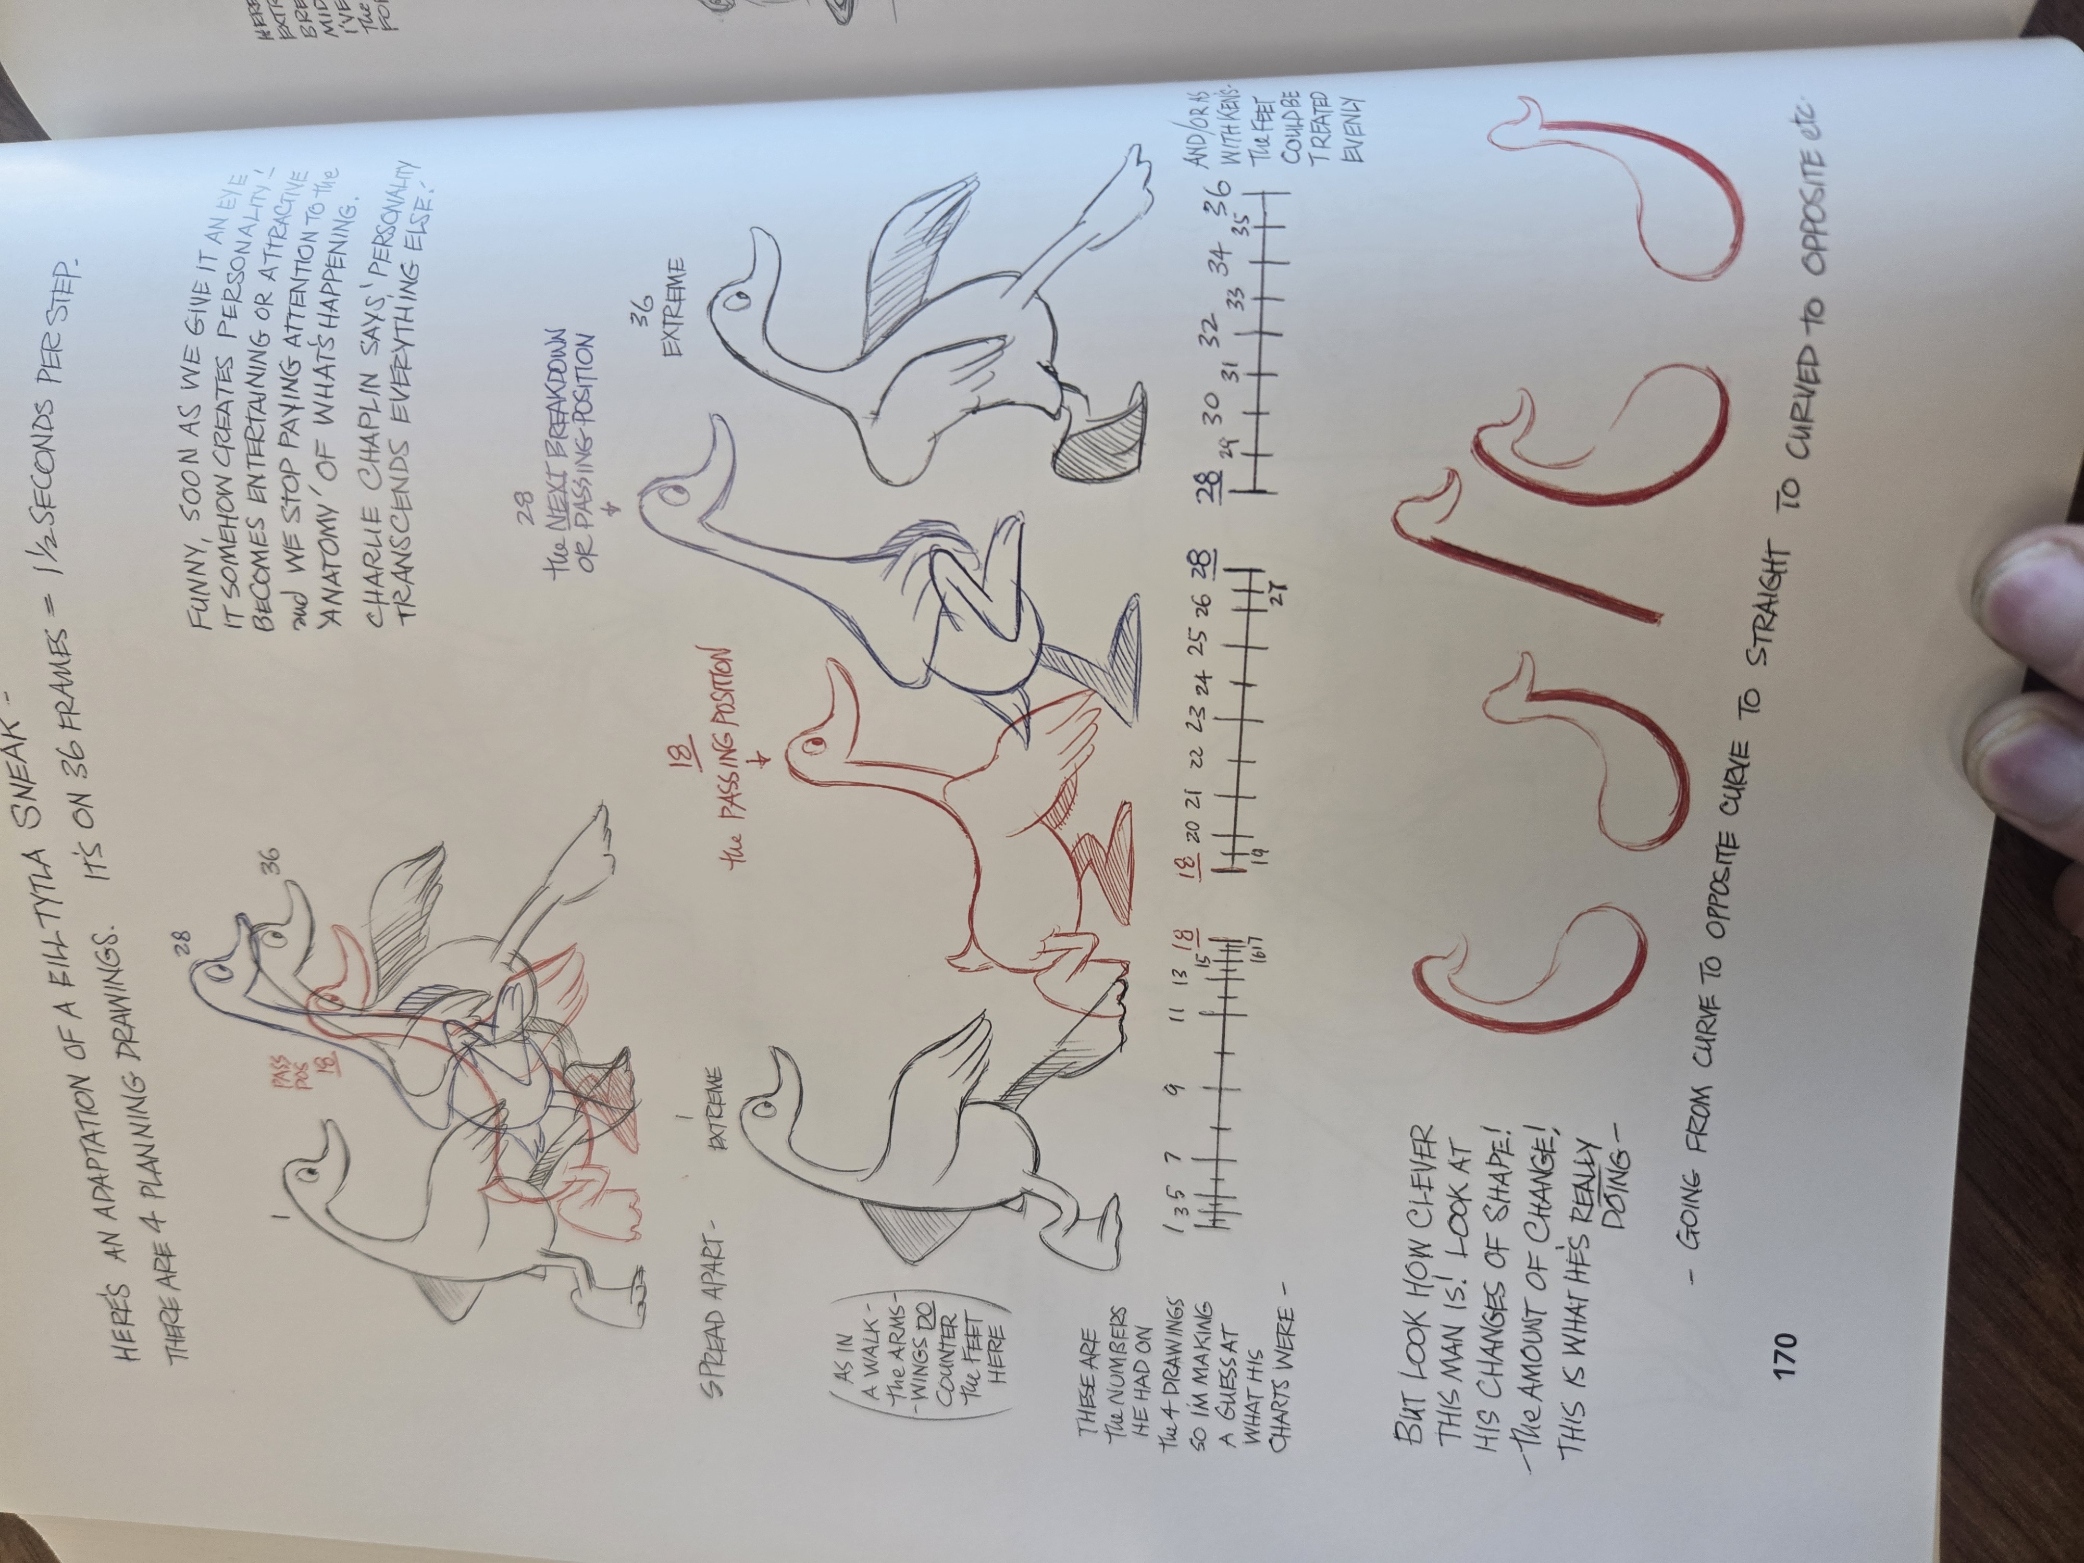 HERE'S AN ADAPTATION OF A BILL TYTLA SNEAK -
THERE ARE 4 PLANNING DRAWINGS. IT'S ON 36 FRAMES = 1 1/2 SECONDS PER STEP.
FUNNY, SOON AS WE GIVE IT AN EYE
IT SOMEHOW CREATES PERSONALITY -
BECOMES ENTERTAINING OR ATTRACTIVE
and WE STOP PAYING ATTENTION TO the
'ANATOMY' OF WHAT'S HAPPENING.
CHARLIE CHAPLIN SAYS, 'PERSONALITY
TRANSCENDS EVERYTHING ELSE.'
1
PASS
POS
18
28
36
28
the NEXT BREAKDOWN
OR PASSING POSITION
36
EXTREME
18
the PASSING POSITION
SPREAD APART -
1
EXTREME
(AS IN
A WALK -
the ARMS -
- WINGS DO
COUNTER
the FEET
HERE)
THESE ARE
the NUMBERS
HE HAD ON
the 4 DRAWINGS
SO I'M MAKING
A GUESS AT
WHAT HIS
CHARTS WERE -
1 3 5 7 9 11 13 15 16 17 18
18 19 20 21 22 23 24 25 26 27 28
28 29 30 31 32 33 34 35 36
AND/OR AS
WITH KEN'S -
the FEET
COULD BE
TREATED
EVENLY
BUT LOOK HOW CLEVER
THIS MAN IS! LOOK AT
HIS CHANGES OF SHAPE!
- the AMOUNT OF CHANGE!
THIS IS WHAT HE'S REALLY
DOING -
- GOING FROM CURVE TO OPPOSITE CURVE TO STRAIGHT TO CURVED TO OPPOSITE etc.
170
HERE
EXTR
BRE
MID
I'VE
The
FOR